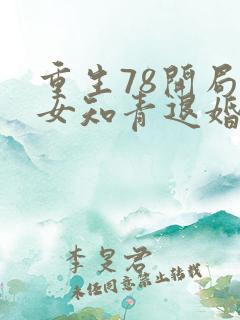 重生78開局
女知青退婚
李旻君
未任同意禁止转载